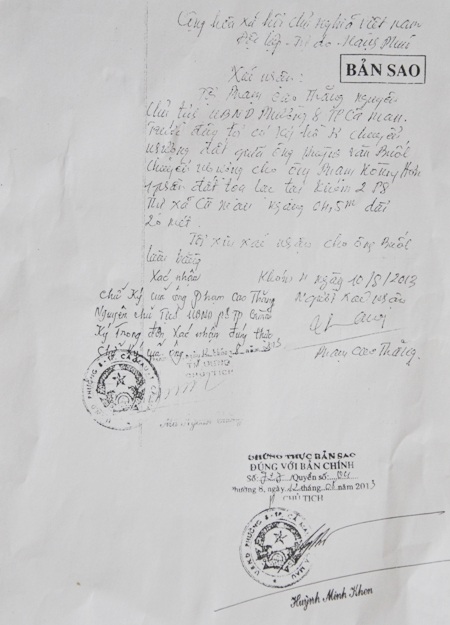 Cộng hòa xã hội chủ nghĩa việt nam
Độc lập - Tự do - Hạnh Phúc
BẢN SAO
Xác nhận:
Phạm Cao Thắng nguyên
Chủ tịch UBND Phường 8 TP Cà Mau.
Trước đây tôi có ký hồ sơ chuyển
nhường đất giữa ông Huỳnh văn Buôl
chuyển nhường cho ông Phạm Hồng
phần đất tọa lạc tại khóm 2 P8
Thị xã Cà Mau ngang 4,5m dài
20 mét.
Tôi xin xác nhận cho ông Buôl
Xác nhận
Khóm ngày 10/8/2013
Chữ Ký của ông Phạm Cao Thắng
Người xác nhận
Nguyên chủ Tịch UBND p8 TP Cà Mau
Ký Trong đây Xác nhận đúng thực
Chữ Ký của ông
Phạm Cao Thắng
CHỦ TỊCH
CHỨNG THỰC BẢN SAO
ĐÚNG VỚI BẢN CHÍNH
Số: 727 /Quyển số: 04
Phường 8, ngày 12 tháng 08 năm 2013
CHỦ TỊCH
Huỳnh Minh Khen